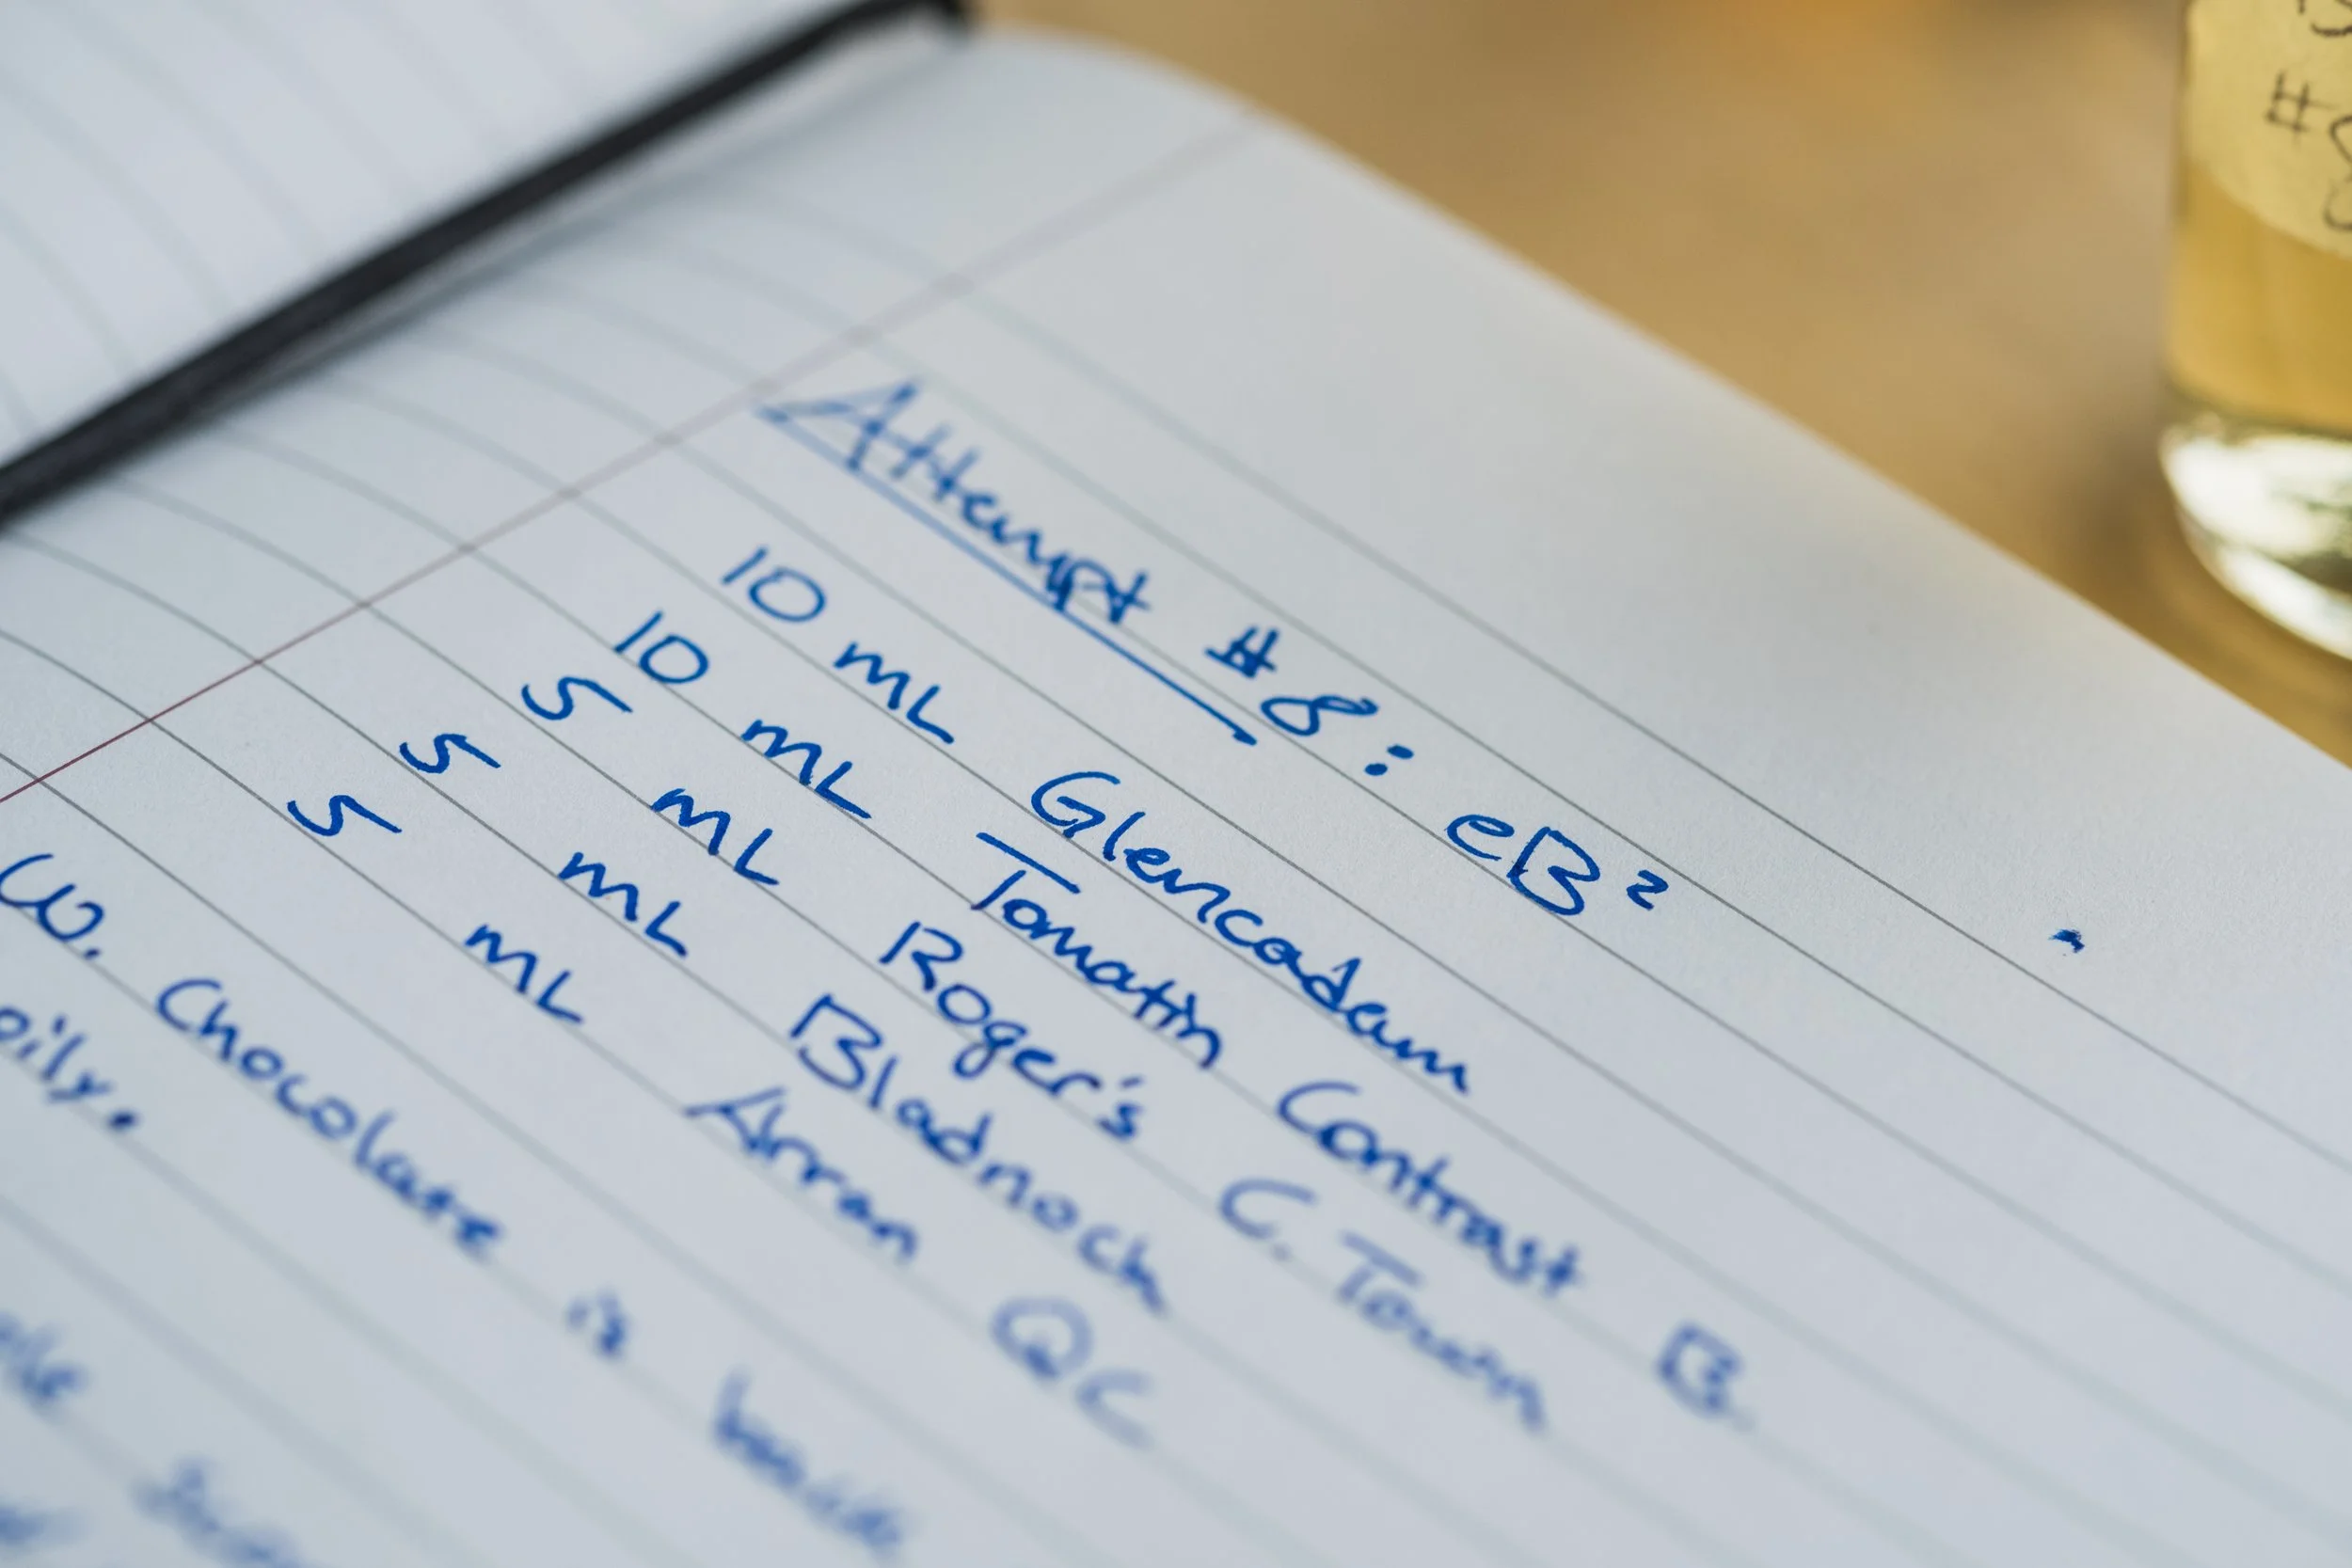 Attempt #8: eB²
10 mL Glencadam
10 mL Tomatin Contrast B
5 mL Roger's C. Town
5 mL Bladnoch
5 mL Arran QC
W. Chocolate is
oily.
#